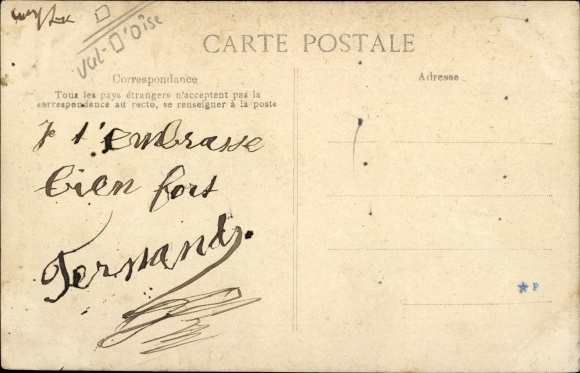 Val-D'Oise
CARTE POSTALE
Correspondance
Tous les pays étrangers n'acceptent pas la
correspondance au recto, se renseigner à la poste
Adresse
Je t'embrasse
bien fort
Fernand.
P